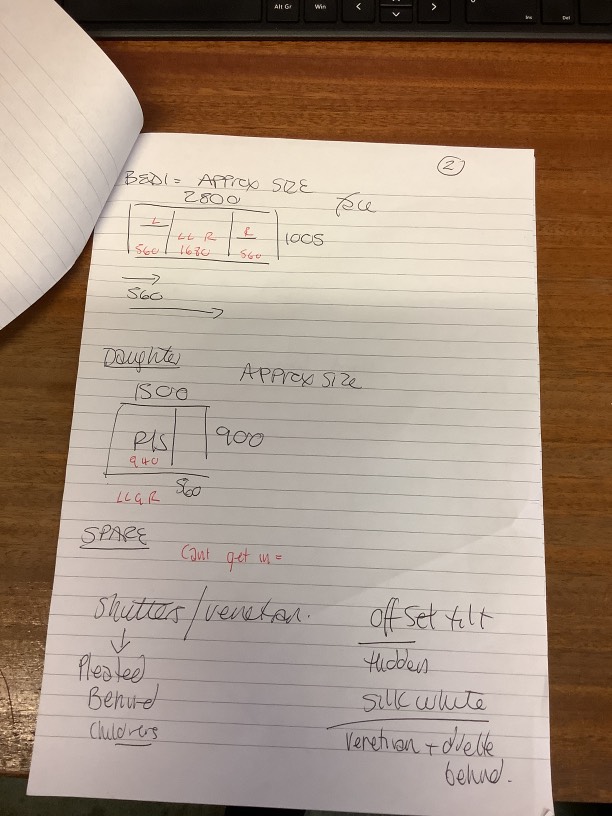 Alt Gr
Win
Ins
Del
2
BED1 = APPROX SIZE
2800
L
LL R
R
1005
560
1680
560
560
Daughter
APPROX SIZE
1500
R/S
900
940
560
SPARE
Cant get in =
Shutters/venetian.
Offset tilt
Pleated
hidden
Behind
Silk white
childrens
Venetian +
behind.